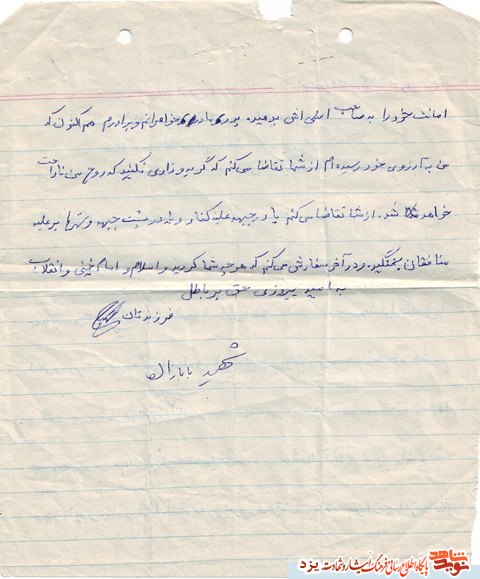 امانت خود را به صاحب اصلی اش بدهید. پدر، مادر، خواهرانم و برادرم هم اکنون که
من به آرزوی خود رسیده ام از شما تقاضا می کنم که گریه و زاری نکنید که روح من ناراحت
خواهد شد. از شما تقاضا می کنم یا در جبهه علیه کفار و یا در پشت جبهه و شهرها بر علیه
منافقان بجنگید. و در آخر سفارش می کنم که هر چه شما کردید و اسلام و امام خمینی و انقلاب
به امید پیروزی حق بر باطل
فرزندتان
شهید بابا
نوید شاهد
پایگاه اطلاع رسانی فرهنگ ایثار و شهادت یزد